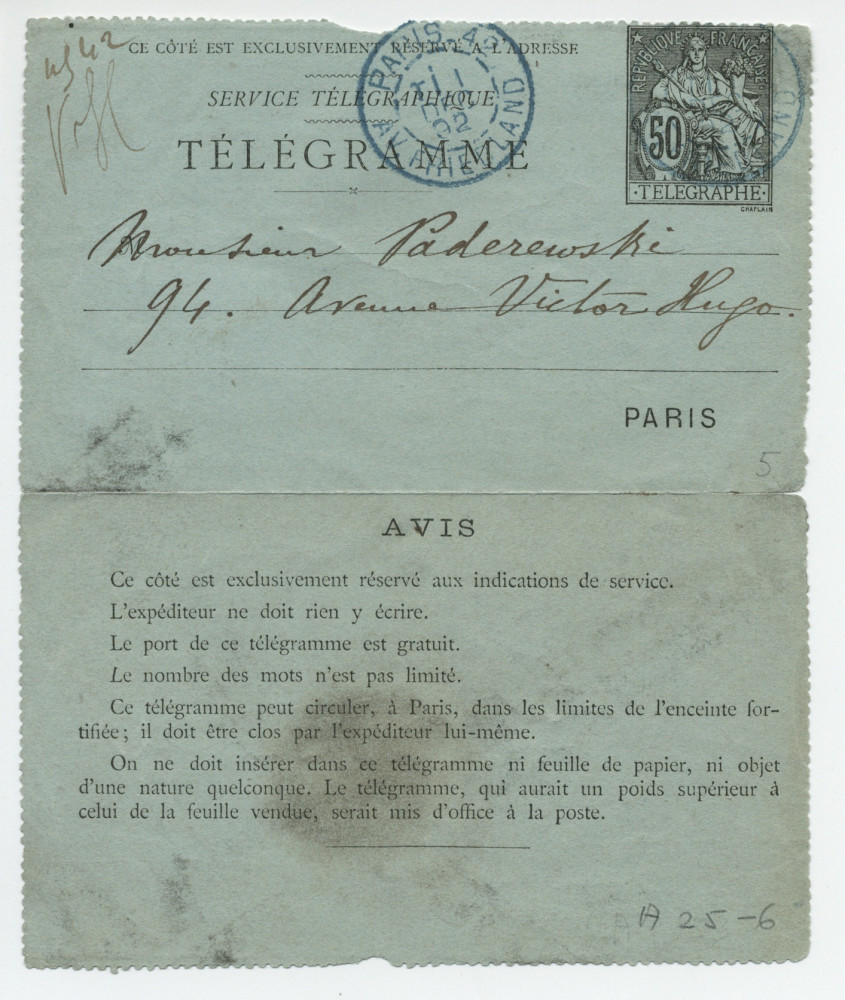 CE CÔTÉ EST EXCLUSIVEMENT RÉSERVÉ A L'ADRESSE
SERVICE TÉLÉGRAPHIQUE
TÉLÉGRAMME
PARIS
REPUBLIQUE FRANÇAISE
50
·TELEGRAPHE·
CHAPLAIN
Monsieur Paderewski
94. Avenue Victor Hugo.
PARIS
5
AVIS
Ce côté est exclusivement réservé aux indications de service.
L'expéditeur ne doit rien y écrire.
Le port de ce télégramme est gratuit.
Le nombre des mots n'est pas limité.
Ce télégramme peut circuler, à Paris, dans les limites de l'enceinte for-
tifiée; il doit être clos par l'expéditeur lui-même.
On ne doit insérer dans ce télégramme ni feuille de papier, ni objet
d'une nature quelconque. Le télégramme, qui aurait un poids supérieur à
celui de la feuille vendue, serait mis d'office à la poste.
A 25-6